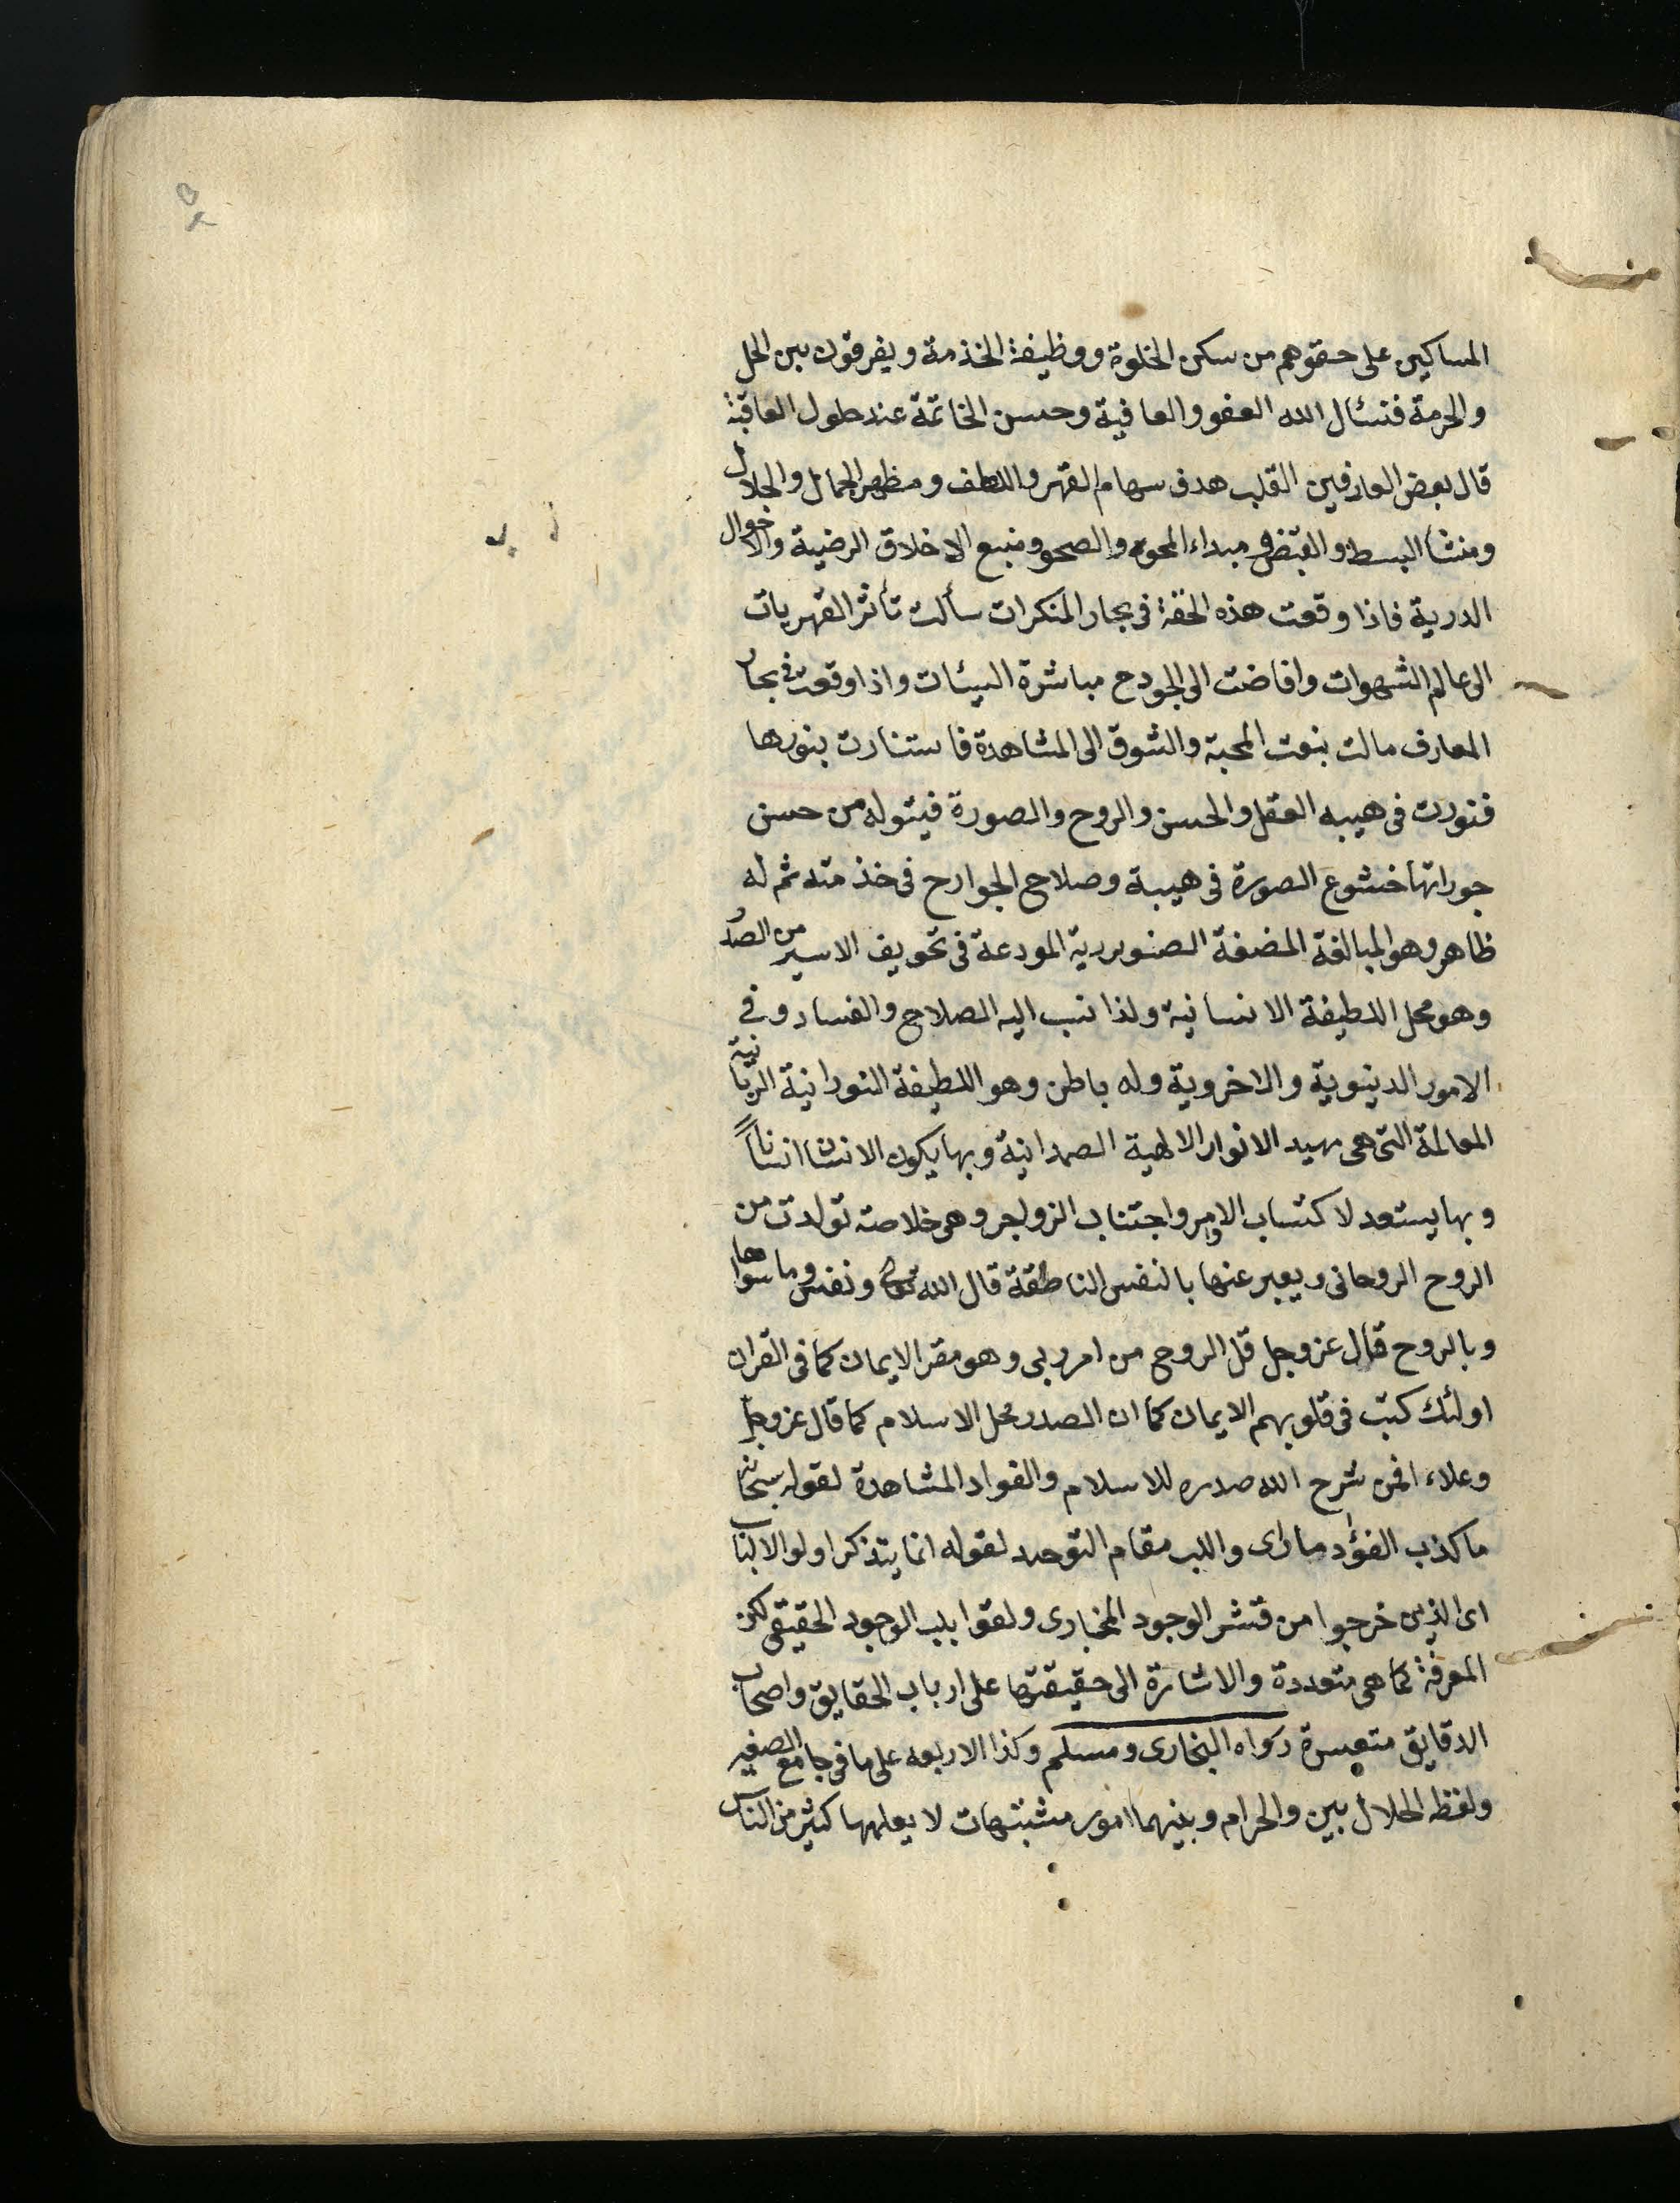 المساكين على حقوهم من سكن الخلوة ووظيفة الخذمة ويفرقون بين الحل
والحرمة فنسئال الله العفو والعافية وحسن الخاتمة عند حلول العاقبة
قال بعض العارفين القلب هدف سهام القهر واللطف ومظهر الجمال والجلال
ومنشا البسط والقبض ومبداء المحو والصحو ومنبع الاخلاق الرضية والاحوال
الدرية فاذا وقعت هذه الحقة فى بحار المنكرات سألت تأثر القهريات
الى عالم الشهوات وافاضت الى الجودح مباشرة السيئات واذا وقعت فى بحار
المعارف مالت بنعت المحبة والشوق الى المشاهدة فاستنارت بنورها
فنورت فى هيبه العقل والحسن والروح والصورة فيتوله من حسن
جوراتها خشوع الصورة فى هيبة وصلاح الجوارح فى خذمته ثم له
ظاهر وهو المبالغة المضغة الصنوبرية المودعة فى تحويف الاسير من الصدر
وهو محل اللطيفة الانسانية ولذا نسب اليه الصلاح والفساد وفى
الامور الدينوية والاخروية وله باطن وهو اللطيفة النورانية الربانية
العالمة التى هى مهيد الانوار الالهية الصمدانية وبها يكون الانسان انساناً
وبها يستعد لاكتساب الاوامر واجتناب الزواجر وهى خلاصته تولدت من
الروح الروحانى ويعبر عنها بالنفس الناطقة قال الله تعالى ونفس وما سواها
وبالروح قال عز وجل قل الروح من امر ربى وهو مقر الايمان كما فى القران
اولئك كتب فى قلوبهم الايمان كما ان الصدر محل الاسلام كما قال عز وجل
وعلاء افمن شرح الله صدره للاسلام والفواد المشاهدة لقوله سبحانه
ما كذب الفؤاد ما راى واللب مقام التوحيد لقوله انما يتذكر اولوا الالباب
اى الذين خرجوا من قشر الوجود المجازى ولقوا بلب الوجود الحقيقى لكن
المعرفة كما هى متعددة والاشارة الى حقيقتها على ارباب الحقايق واصحاب
الدقايق متعسرة رواه البخارى ومسلم وكذا الاربعه على ما فى جامع الصغير
ولفظه الحلال بين والحرام وبينهما امور مشتبهات لا يعلمها كثير من الناس